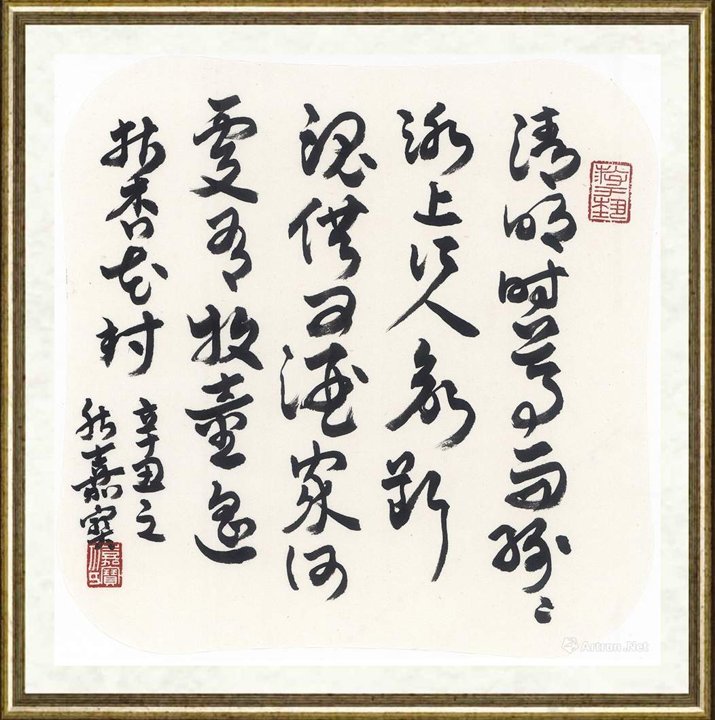 清明时节雨纷〻
路上行人欲断
魂借问酒家何
處有牧童遥
指杏花村
辛丑之
秋嘉寶
Artron.Net